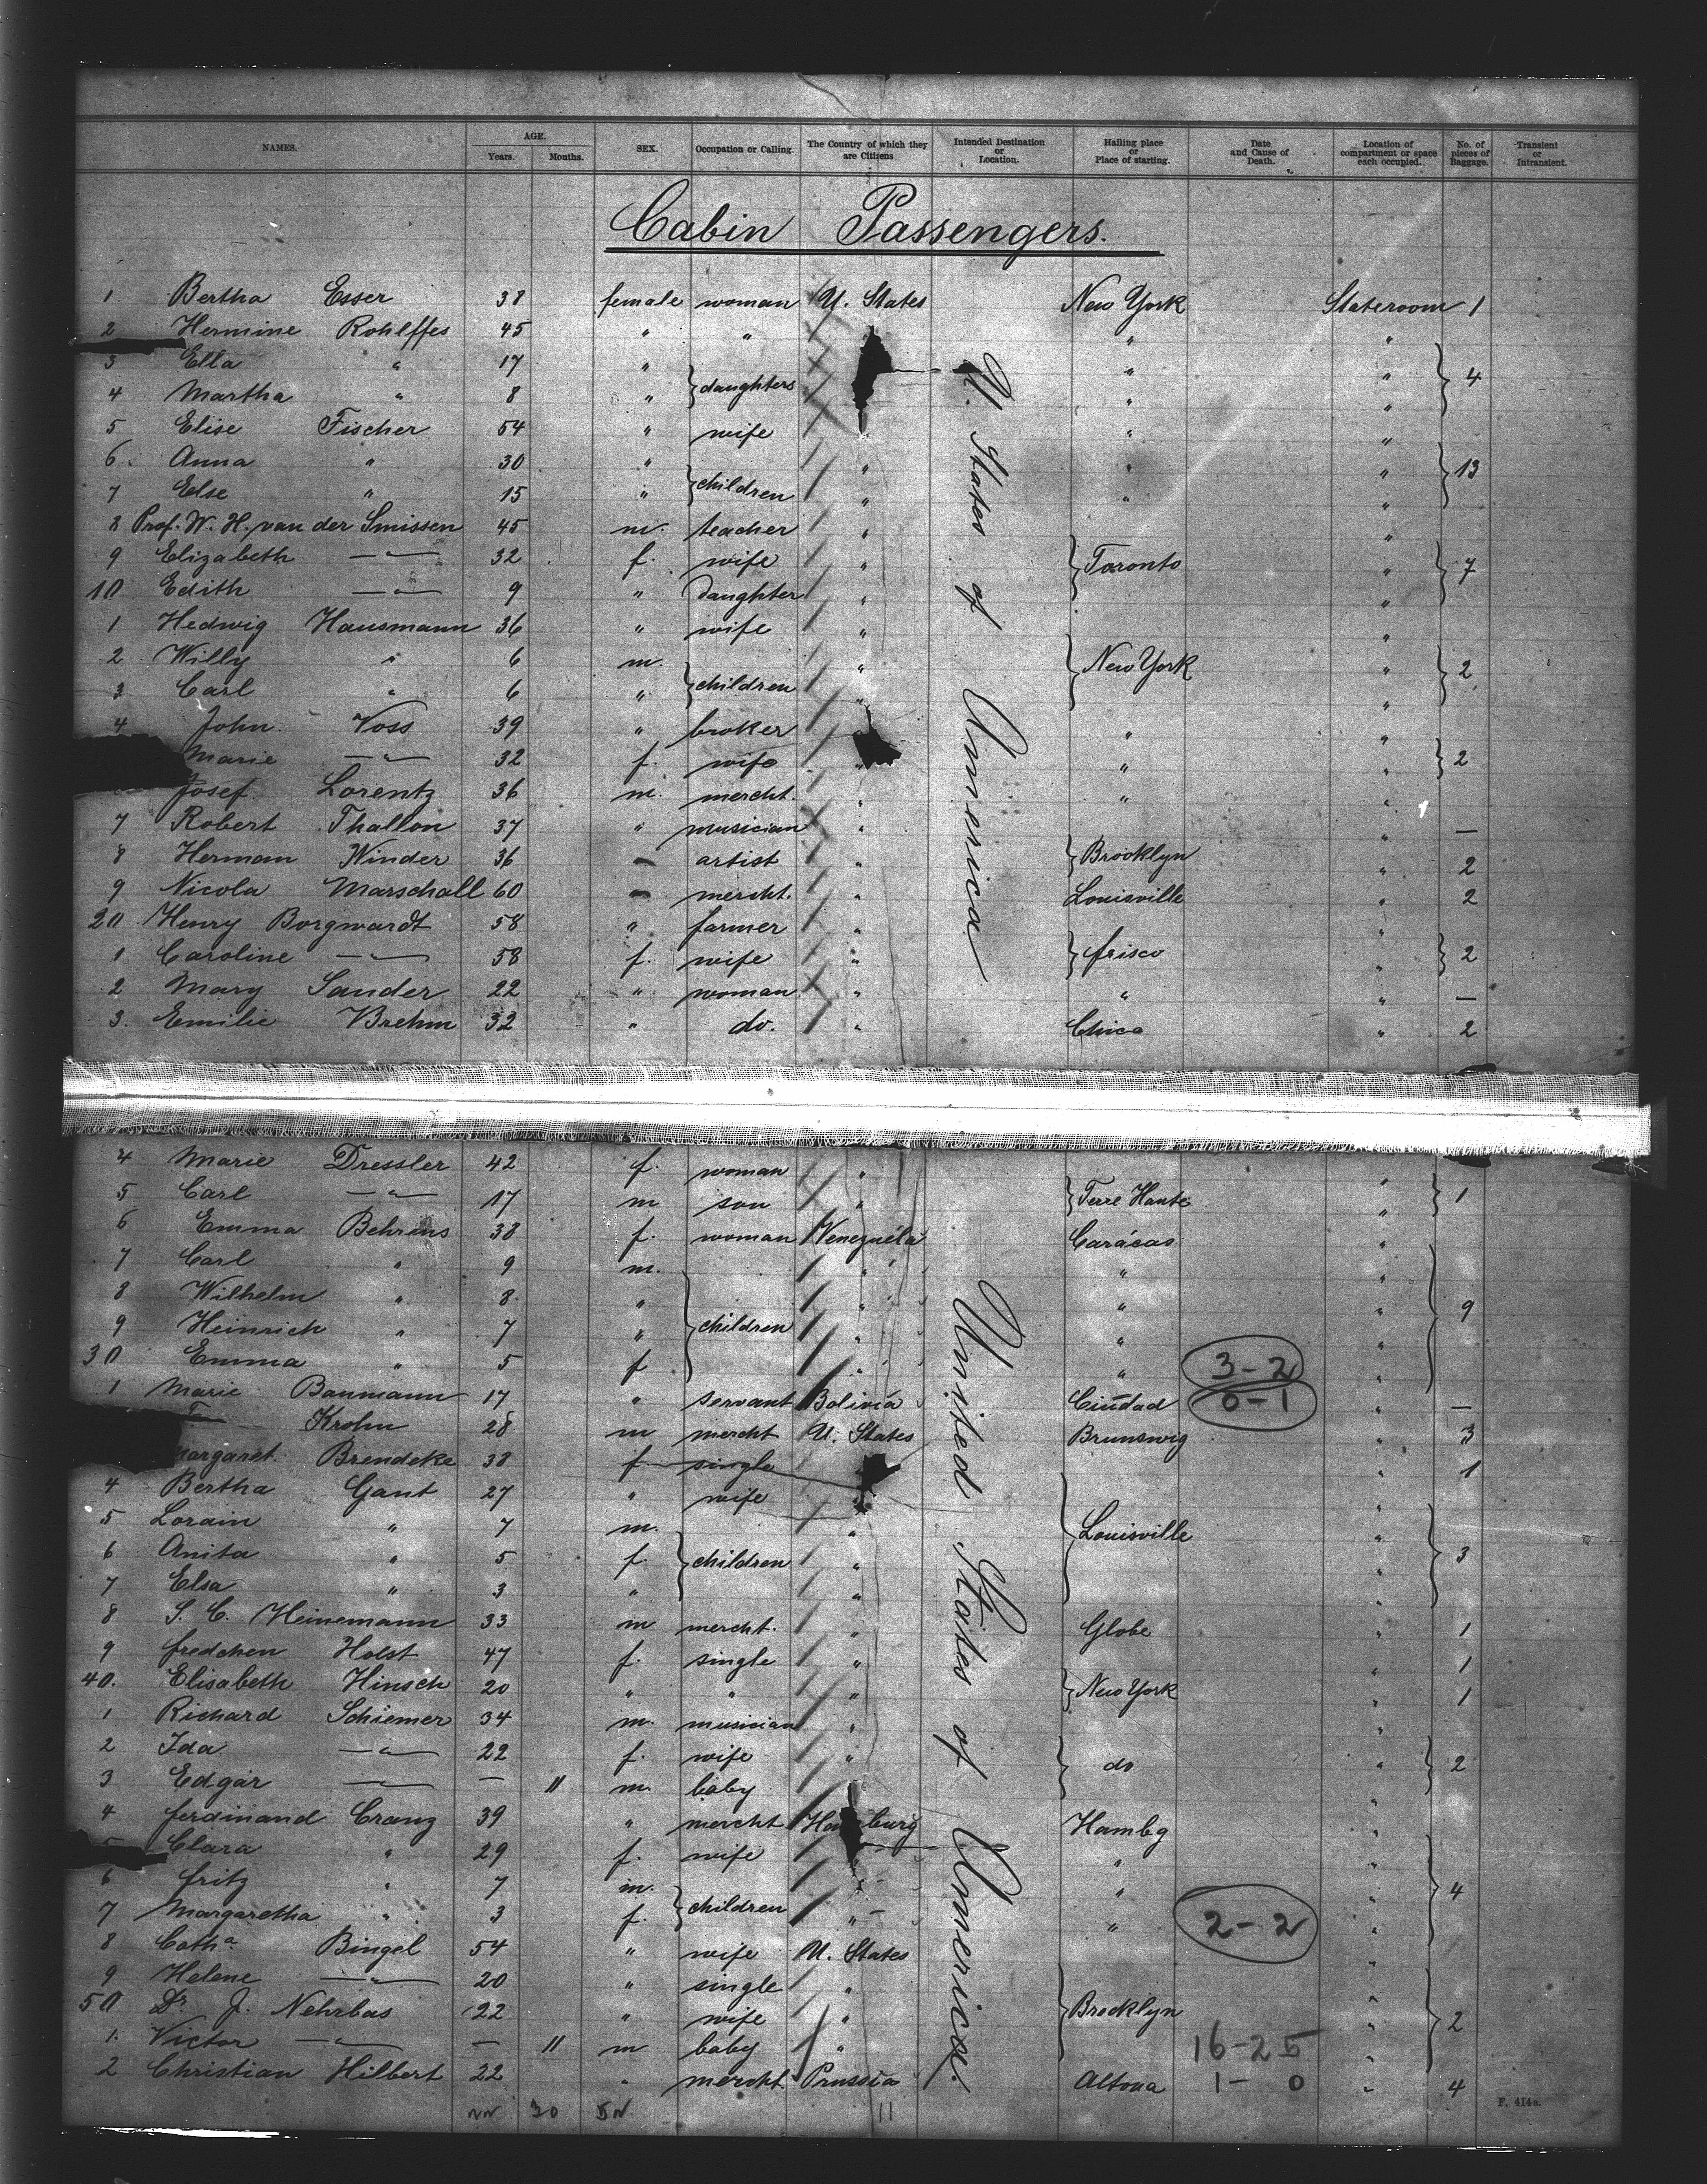 NAMES. AGE. Years. Months. SEX. Occupation or Calling. The Country of which they are Citizens Intended Destination or Location. Hailing place or Place of starting. Date and Cause of Death. Location of compartment or space each occupied. No. of pieces of Baggage. Transient or Intransient.
Cabin Passengers.
1 Bertha Esser 38 female woman U. States New York Stateroom 1
2 Hermine Rohlffes 45 " " " "
3 Ella " 17 " " "
4 Martha " 8 " } daughters " " } 4
5 Elise Fischer 54 " wife " "
6 Anna " 30 " " " "
7 Else " 15 " } children " " " } 13
8 Prof. W. H. van der Smissen 45 m. teacher " "
9 Elizabeth —"— 32 f. wife " } Toronto " } 7
10 Edith —"— 9 " Daughter " "
1 Hedwig Hausmann 36 " wife " "
2 Willy " 6 m. " } New York " } 2
3 Carl " 6 " } children " "
4 John Voss 39 " broker " "
Marie —"— 32 f. wife " " " } 2
Josef Lorentz 36 m. mercht. " " "
7 Robert Thallon 37 " musician " " —
8 Herman Winder 36 " artist " } Brooklyn " 2
9 Nicola Marschall 60 " mercht. " Louisville " 2
20 Henry Borgwardt 58 " farmer " "
1 Caroline —"— 58 f. wife " } frisco " } 2
2 Mary Sander 22 " woman " " " —
3. Emilie Brehm 32 " do. " Chica " 2
U. States of America
4 Marie Dressler 42 f. woman " "
5 Carl —"— 17 m son " } Terre Haute " } 1
6 Emma Behrens 38 f. woman Venezuéla Carácas "
7 Carl " 9 m. " " "
8 Wilhelm " 8 " " " "
9 Heinrich " 7 " } children " " " } 9
30 Emma " 5 f " " 3-2 "
1 Marie Baumann 17 " servant Bolivia Ciudad 0-1 " —
Krohn 28 m mercht U. States Brunswig " 3
Margaret Brendeke 38 f single " 1
4 Bertha Gant 27 " wife " "
5 Lorain " 7 m. " } Louisville "
6 Anita " 5 f. } children " " } 3
7 Elsa " 3 " " "
8 S. C. Heinemann 33 m mercht. " Globe " 1
9 fredchen Holst 47 f. single " " 1
40. Elisabeth Hinsch 20 " " " } New York " 1
1 Richard Schiemer 34 m. musician " "
2 Ida —"— 22 f. wife " } do " } 2
3 Edgar — — 11 m. baby "
4 ferdinand Cranz 39 " mercht Hamburg Hambg "
5 Clara " 29 f. wife " "
6 fritz " 7 m. " " } 4
7 Margaretha " 3 f. } children " " 2-2 "
8 Cath.a Bingel 54 " wife U. States "
9 Helene —"— 20 " single " "
50 Dr J. Nehrbas 22 " wife " } Brooklyn " } 2
1. Victor —"— — 11 m baby " 16-25 "
2 Christian Hilbert 22 " mercht Prussia Altona 1- 0 " 4
United States of America.
20 11
F. 414a.